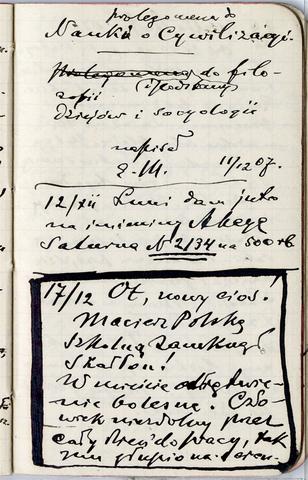 prolegomena do
Nauki o Cywilizacji
Prolegomena do filo-
zofii (Podstawy)
dziejów i socyologii
napisał
E. M. 11/12 07.
12/XII Luni dam jutro
na imieniny Akcyę
Saturna N 2134 na 500 rb
17/12 Ot, nowy cios!
Macierz Polską
Szkolną zamknął
Skałłon!
W mieście odrętwie-
nie bolesne. Czło-
wiek niezdolny przez
cały dzień do pracy, tak
mu głupio na